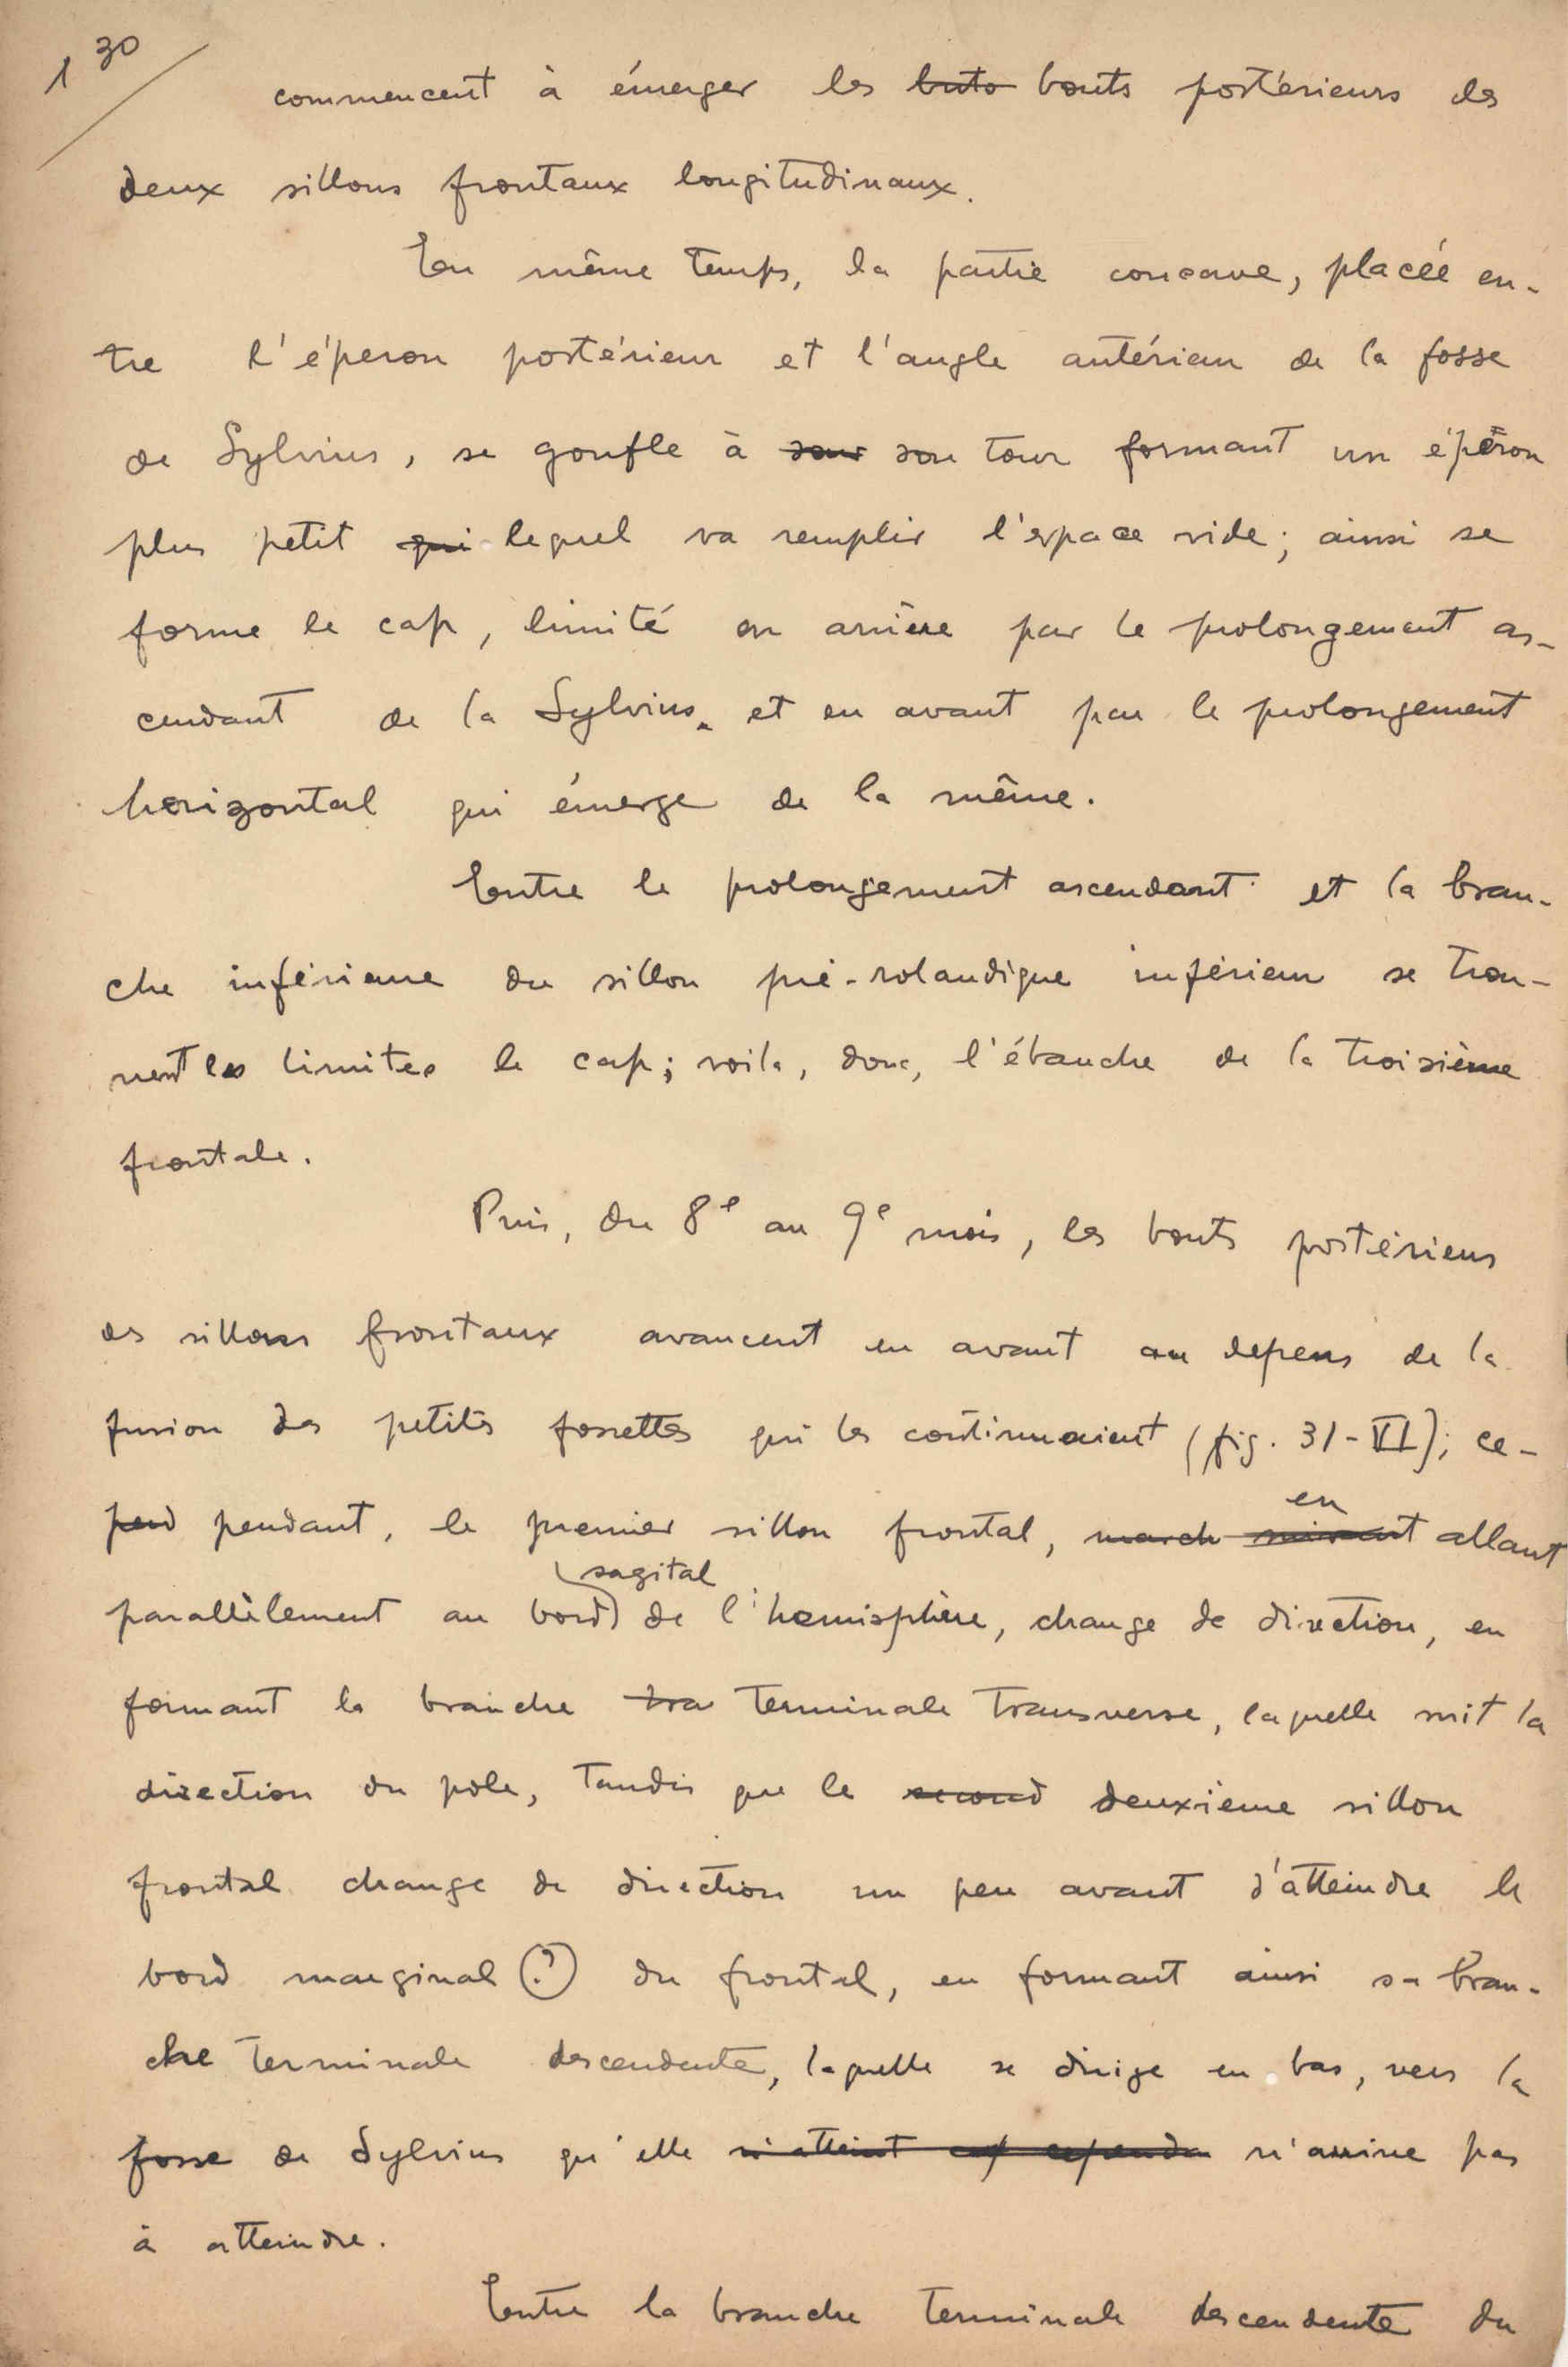 130
commencent à émerger les buto bouts postérieurs des
deux sillons frontaux longitudinaux.
En même temps, la partie concave, placée en-
tre l'éperon postérieur et l'angle antérieur de la fosse
de Sylvius, se gonfle à sour son tour formant un éperon
plus petit qui lequel va remplir l'espace vide; ainsi se
forme le cap, limité en arrière par le prolongement as-
cendant de la Sylvius et en avant par le prolongement
horizontal qui émerge de la même.
Entre le prolongement ascendant et la bran-
che inférieure du sillon pré-rolandique inférieur se trou-
vent les limites le cap; voila, donc, l'ébauche de la troisième
frontale.
Puis, du 8e au 9e mois, les bouts postérieurs
des sillons frontaux avancent en avant au depens de la
fusion des petites fossettes qui les continuaient (fig. 31-VI); ce-
pend pendant, le premier sillon frontal, march suivant en allant
parallèlement au bord sagital de l'hemisphère, change de direction, en
formant la branche tra terminale transverse, laquelle suit la
direction du pôle, tandis que le second deuxième sillon
frontal change de direction un peu avant d'atteindre le
bord marginal (?) du frontal, en formant ainsi sa bran-
che terminale descendente, laquelle se dirige en bas, vers la
fosse de Sylvius qu'elle n'atteint cependa n'arrive pas
à atteindre.
Entre la branche terminale descendente du